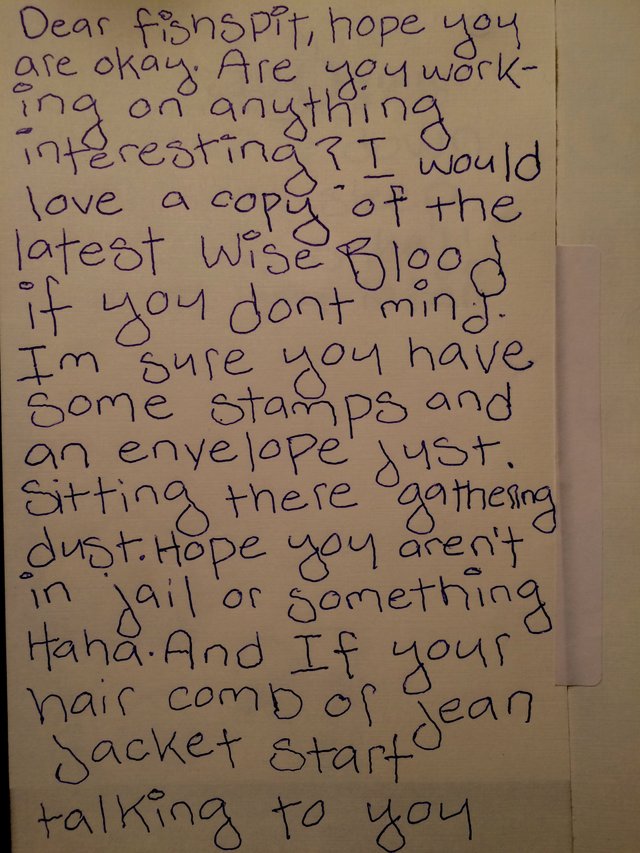 Dear fishspit, hope you
are okay. Are you work-
ing on anything
interesting? I would
love a copy of the
latest Wise Blood
if you dont mind.
Im sure you have
some stamps and
an envelope just.
sitting there gathering
dust. Hope you aren't
in jail or something
Haha. And If your
hair comb or jean
jacket start
talking to you